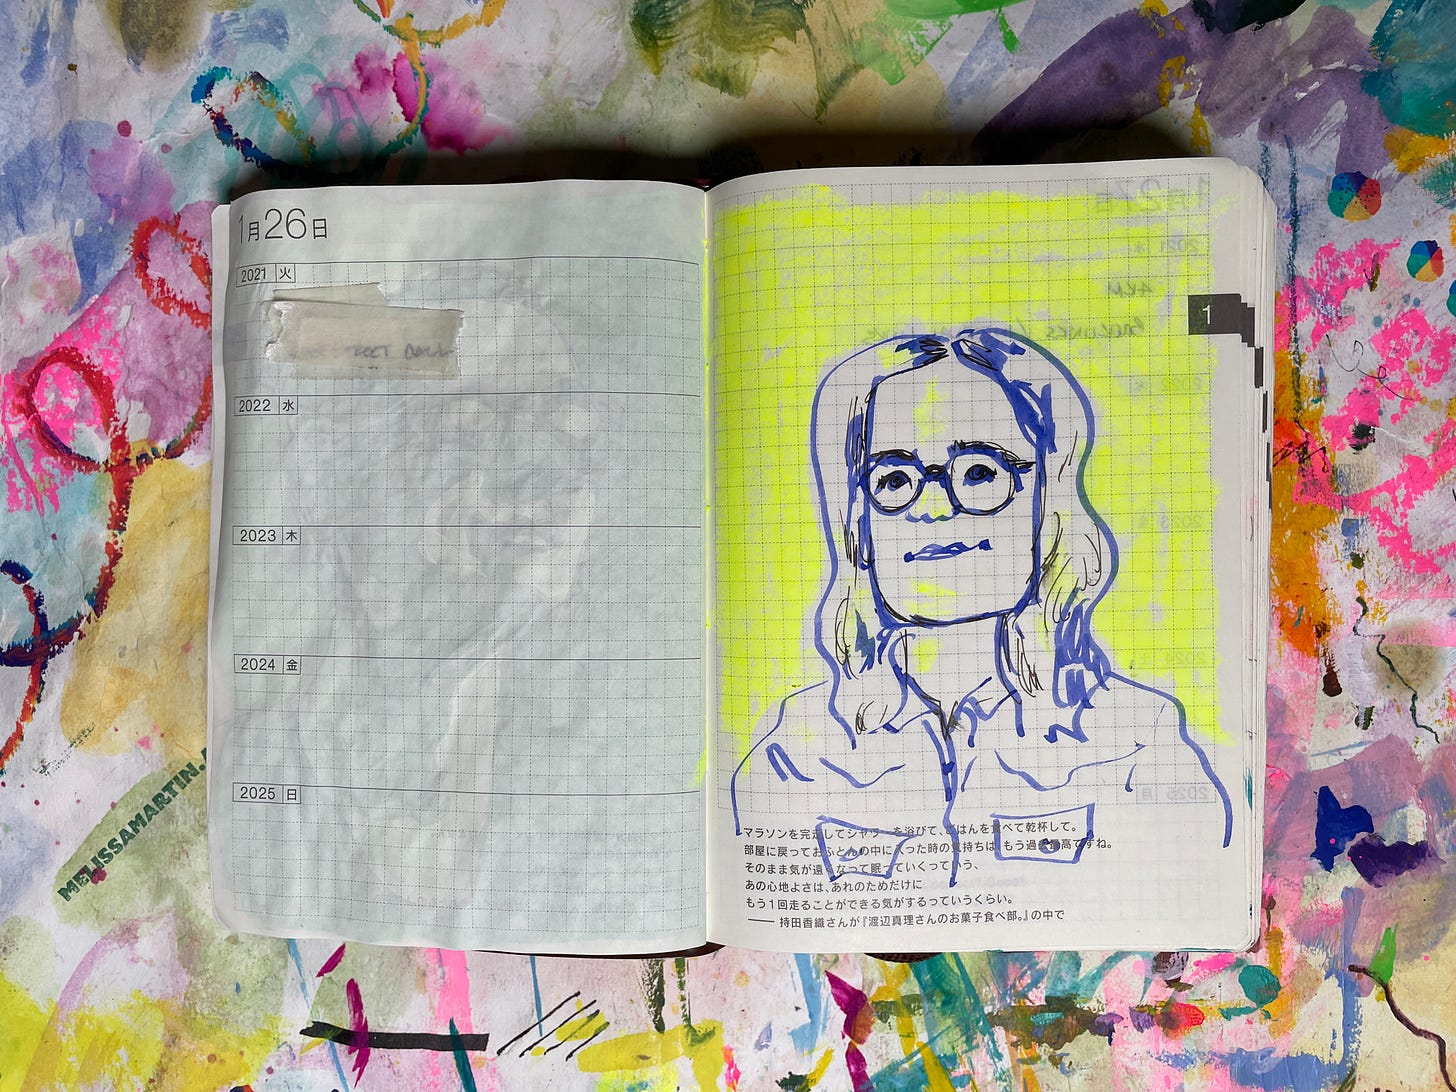 1月26日
2021 火
2022 水
2023 木
2024 金
2025 日
1
マラソンを完走してシャワーを浴びて、ごはんを食べて乾杯して。
部屋に戻っておふとんの中に入った時の気持ちは、もう過去最高ですね。
そのまま気が遠くなって眠っていくっていう、
あの心地よさは、あれのためだけに
もう1回走ることができる気がするっていうくらい。
―― 持田香織さんが『渡辺真理さんのお菓子食べ部。』の中で
MELISSAMARTIN.